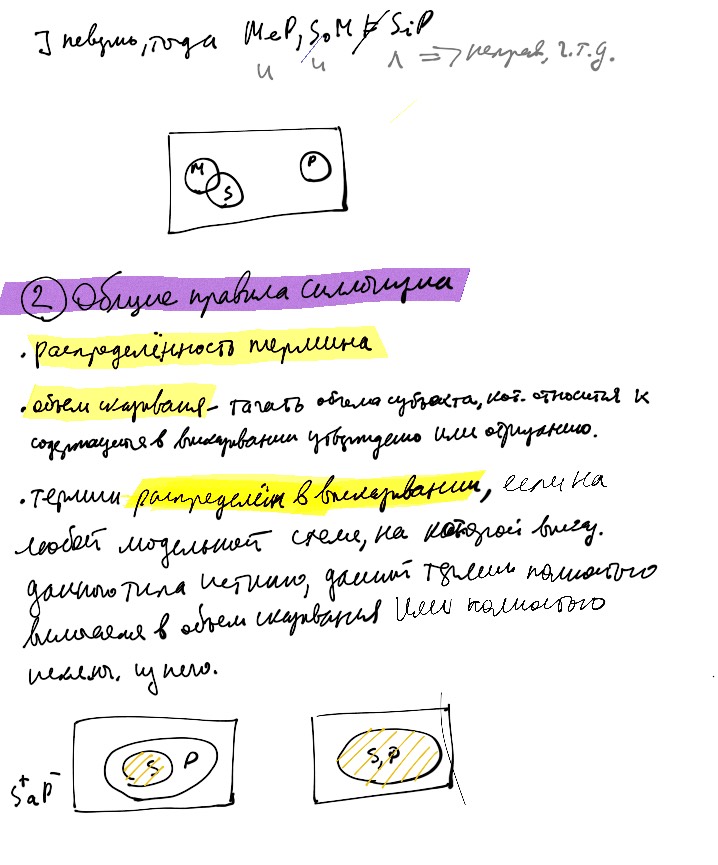 ] неверно, тогда MeP, SoM ⊭ SiP
и и л => неправ, ч.т.д.
M S P
② Общие правила силлогизма
• распределённость термина
• объём сказывания – та часть объема субъекта, кот. относится к
содержащемуся в высказывании утверждению или отрицанию.
• термин распределён в высказывании, если на
любой модельной схеме, на которой выск.
данного типа истинно, данный термин полностью
включается в объем сказывания или полностью
исключ. из него.
S P S, P
S⁺aP⁻